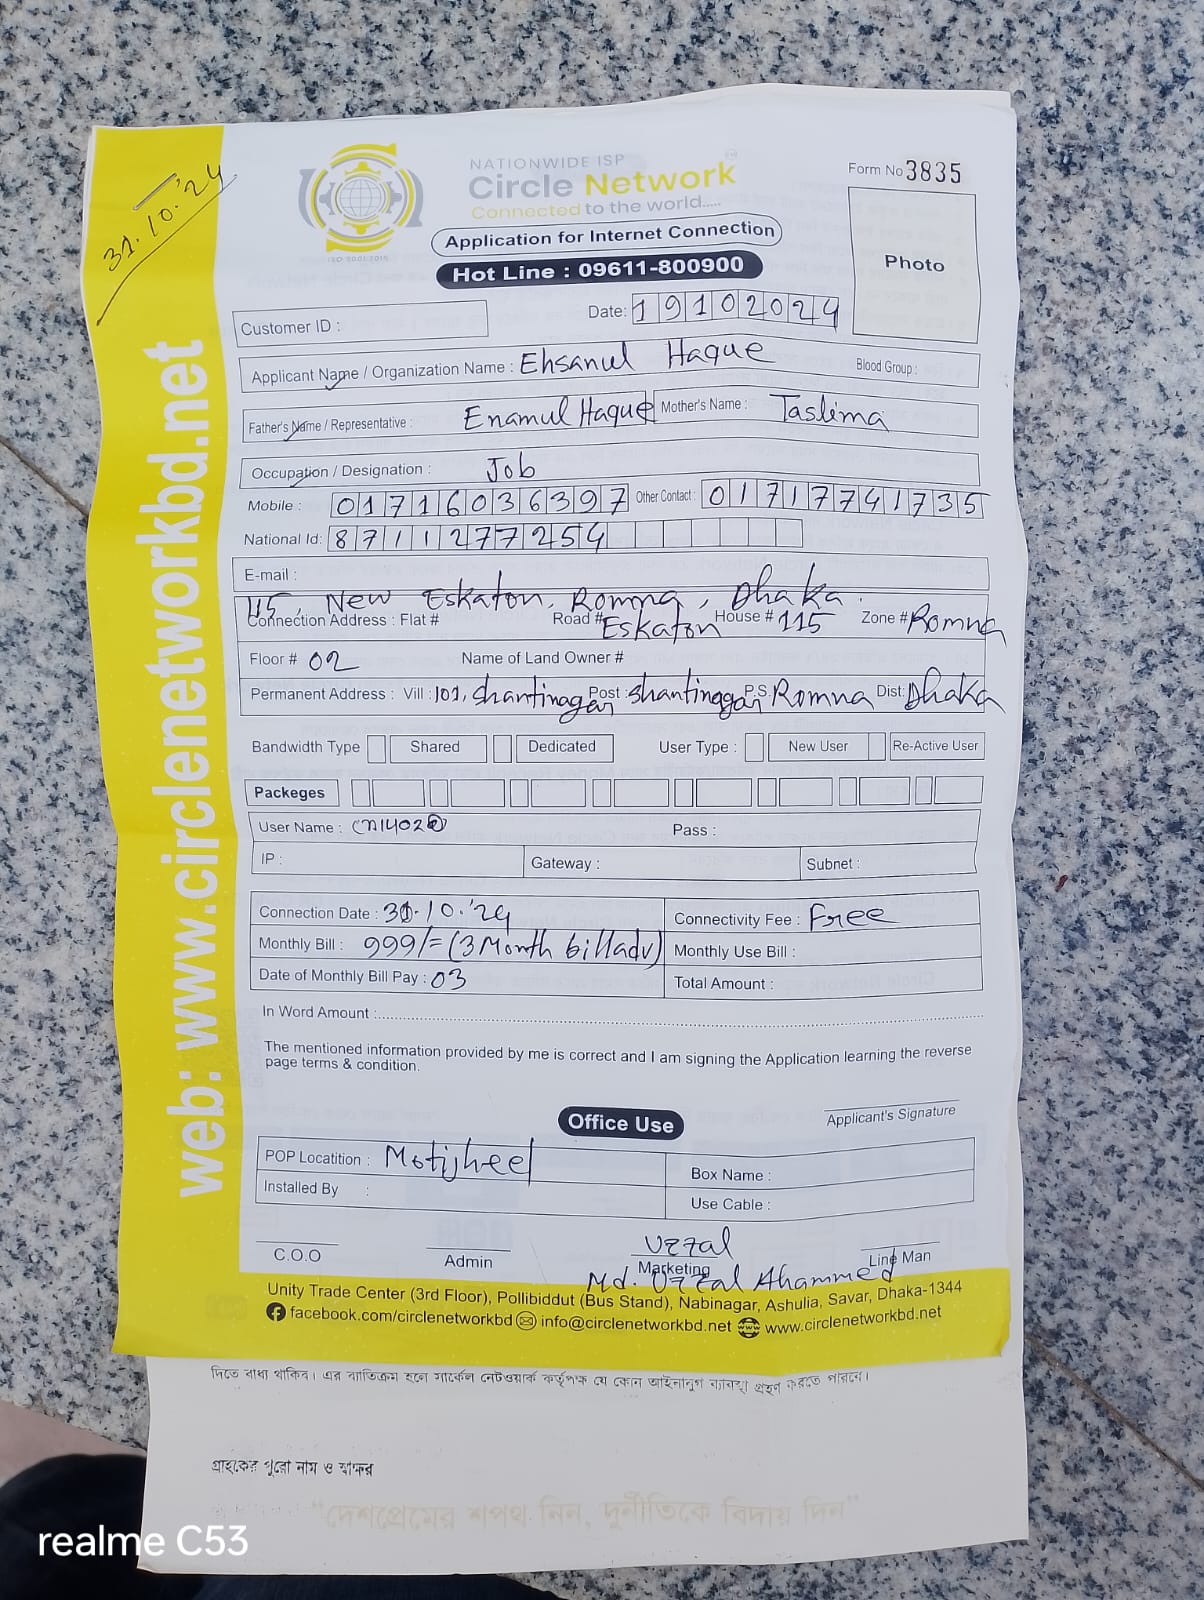 31.10.'24
NATIONWIDE ISP
Circle Network
Connected to the world.....
ISO 9001:2015
Form No 3835
Application for Internet Connection
Hot Line : 09611-800900
Photo
Customer ID :
Date: 19102024
Applicant Name / Organization Name : Ehsanul Haque Blood Group :
Father's Name / Representative : Enamul Haque Mother's Name : Taslima
Occupation / Designation : Job
Mobile : 01716036397 Other Contact : 01717741735
National Id: 8711277254
E-mail :
115, New Eskaton, Romna, Dhaka.
Connection Address : Flat # Road # Eskaton House # 115 Zone # Romna
Floor # 02 Name of Land Owner #
Permanent Address : Vill : 101, Shantinagar Post : Shantinagar P.S. Romna Dist: Dhaka
Bandwidth Type Shared Dedicated User Type : New User Re-Active User
Packeges
User Name : Pass :
IP : Gateway : Subnet :
Connection Date : 31.10.'24 Connectivity Fee : Free
Monthly Bill : 999/= (3 Month bill adv) Monthly Use Bill :
Date of Monthly Bill Pay : 03 Total Amount :
In Word Amount :
The mentioned information provided by me is correct and I am signing the Application learning the reverse
page terms & condition.
Applicant's Signature
Office Use
POP Locatition : Motijheel Box Name :
Installed By : Use Cable :
Uzzal
C.O.O Admin Marketing Line Man
Md. Uzzal Ahammed
Unity Trade Center (3rd Floor), Pollibiddut (Bus Stand), Nabinagar, Ashulia, Savar, Dhaka-1344
facebook.com/circlenetworkbd info@circlenetworkbd.net www.circlenetworkbd.net
web: www.circlenetworkbd.net
দিতে বাধ্য থাকিব। এর ব্যতিক্রম হলে সার্কেল নেটওয়ার্ক কর্তৃপক্ষ যে কোন আইনানুগ ব্যবস্থা গ্রহণ করতে পারবে।
গ্রাহকের পুরো নাম ও স্বাক্ষর
"দেশপ্রেমের শপথ নিন, দুর্নীতিকে বিদায় দিন"
realme C53